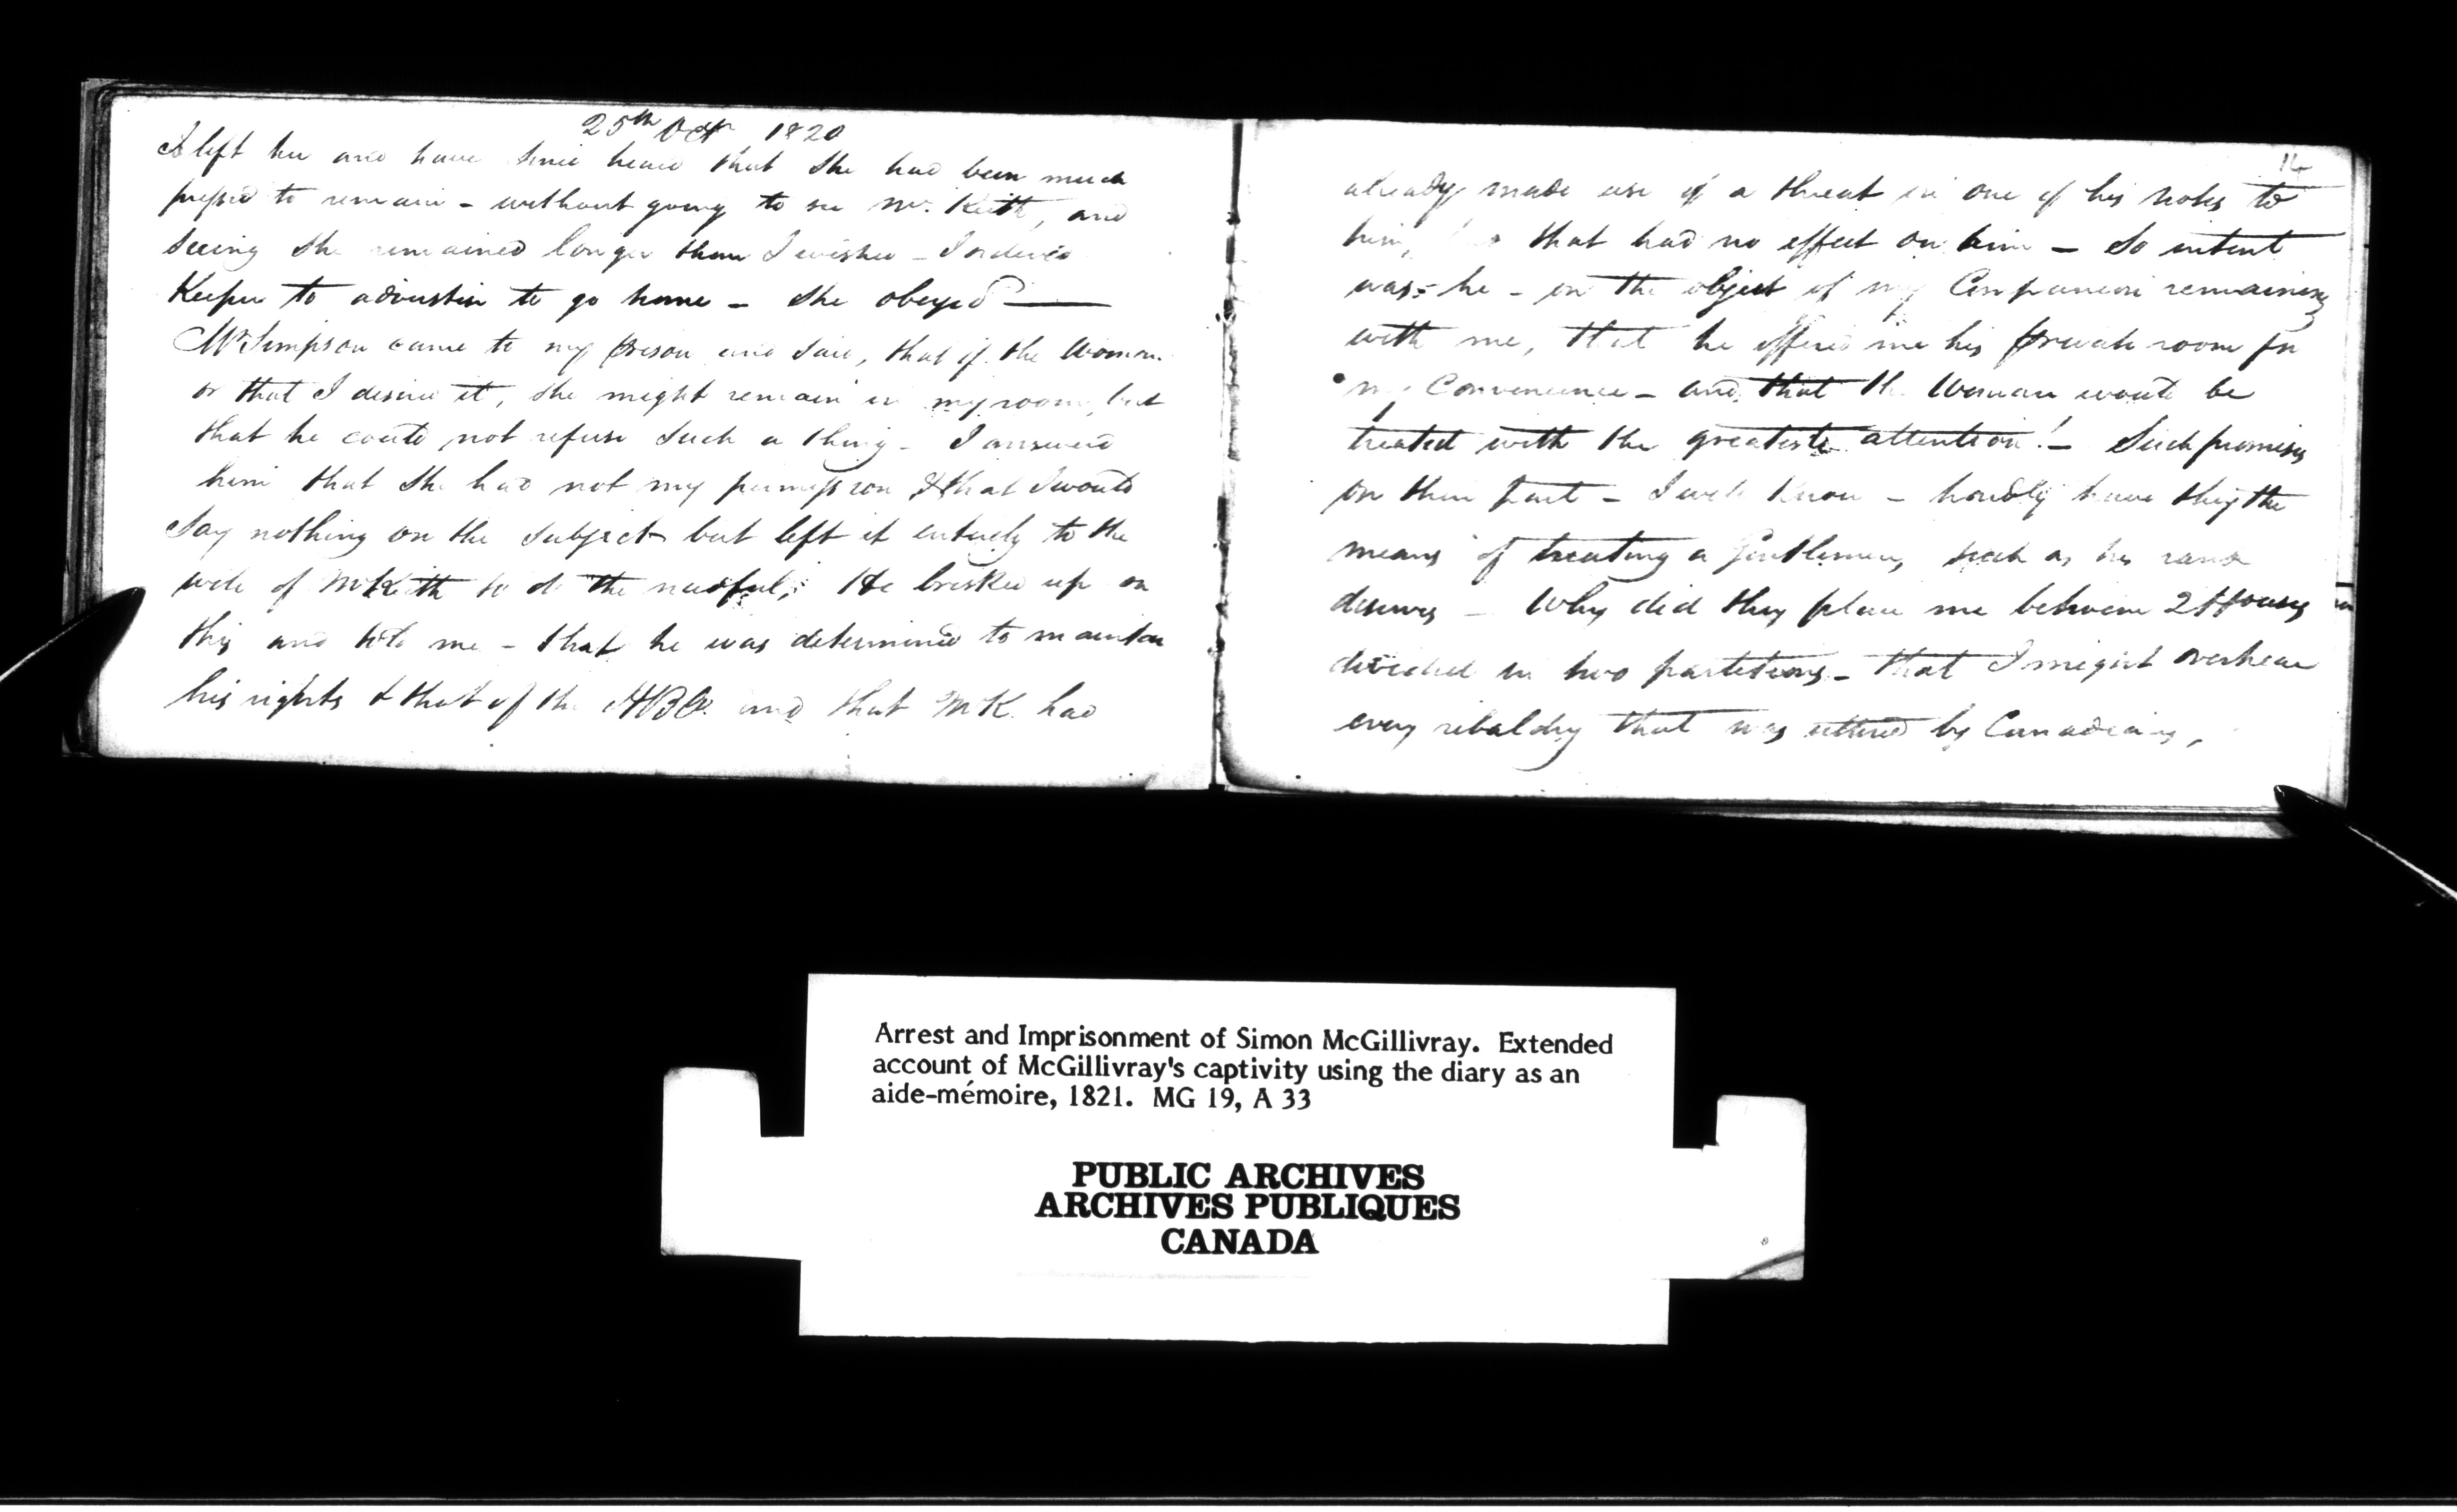 25th Octr 1820
I left her and have since heard that she had been much
pressed to remain - without going to see Mr. Keith, and
seeing she remained longer than I wished - I ordered
Keeper to to go home - she obeyed —
Mr Simpson came to my prison and said, that if the Woman
or that I desired it, she might remain in my room, but
that he could not refuse such a thing - I answered
him that she had not my permission & that I would
say nothing on the subject but left it entirely to the
will of Mr Keith to do the needful; He brisked up on
this and told me - that he was determined to maintain
his rights & that of the HBCo. and that Mr K. had
14
already made use of a threat in one of his notes to
him, that had no effect on him - So intent
was he - on the object of my Companion remaining
with me, that he offered me his private room for
my Convenience - and that the Woman would be
treated with the greatest attention! - Such promises
on their part - I well know - hardly have they the
means of treating a Gentleman, such as his rank
deserves - Why did they place me between 2 Houses
divided in two partitions - that I might overhear
every ribaldry that was uttered by Canadians,
Arrest and Imprisonment of Simon McGillivray. Extended
account of McGillivray's captivity using the diary as an
aide-mémoire, 1821. MG 19, A 33
PUBLIC ARCHIVES
ARCHIVES PUBLIQUES
CANADA